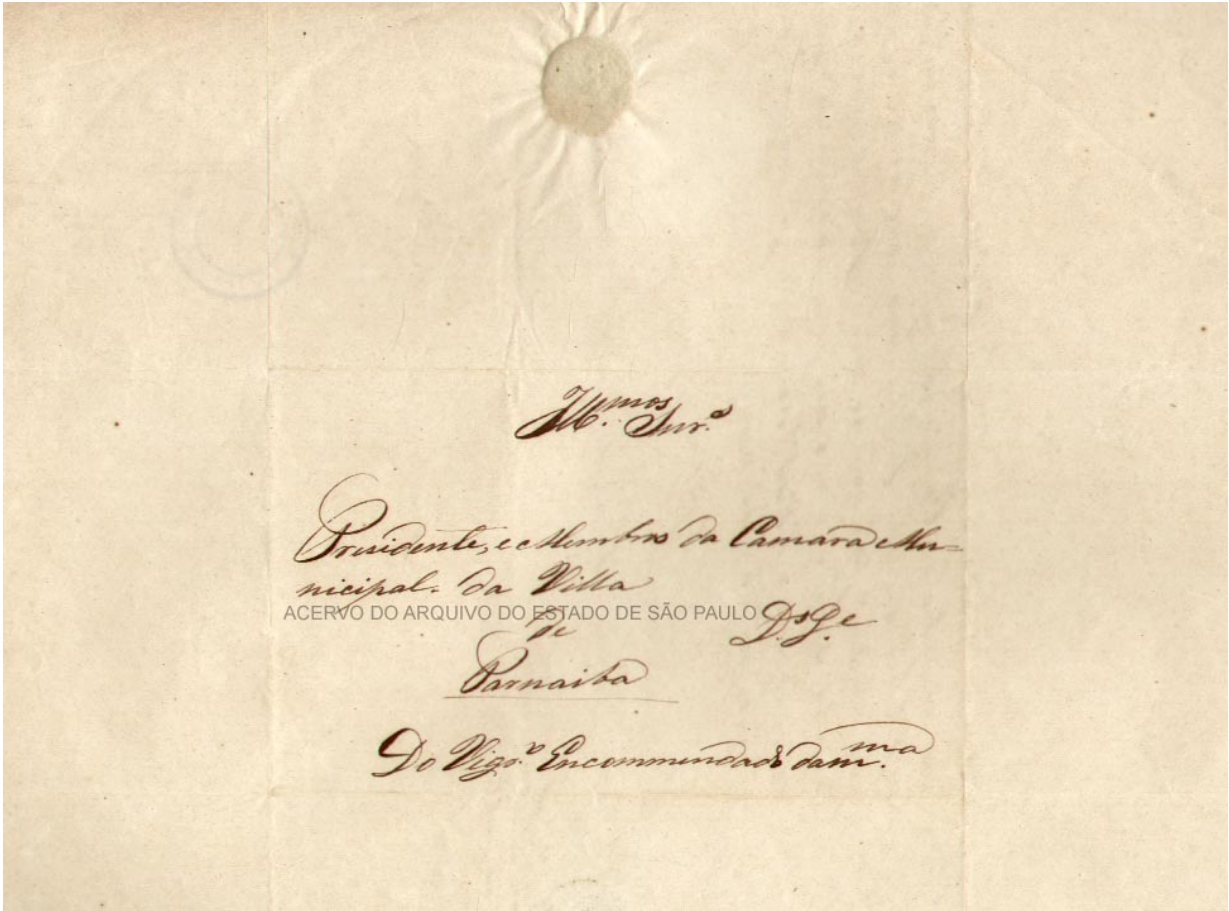 Ill.mos Snr.s
Presidente, e Membros da Camara Mu=
nicipal. da Villa
ACERVO DO ARQUIVO DO ESTADO DE SÃO PAULO
de D.s G.e
Parnaiba
Do Vigr.o Encommendado da m.ma